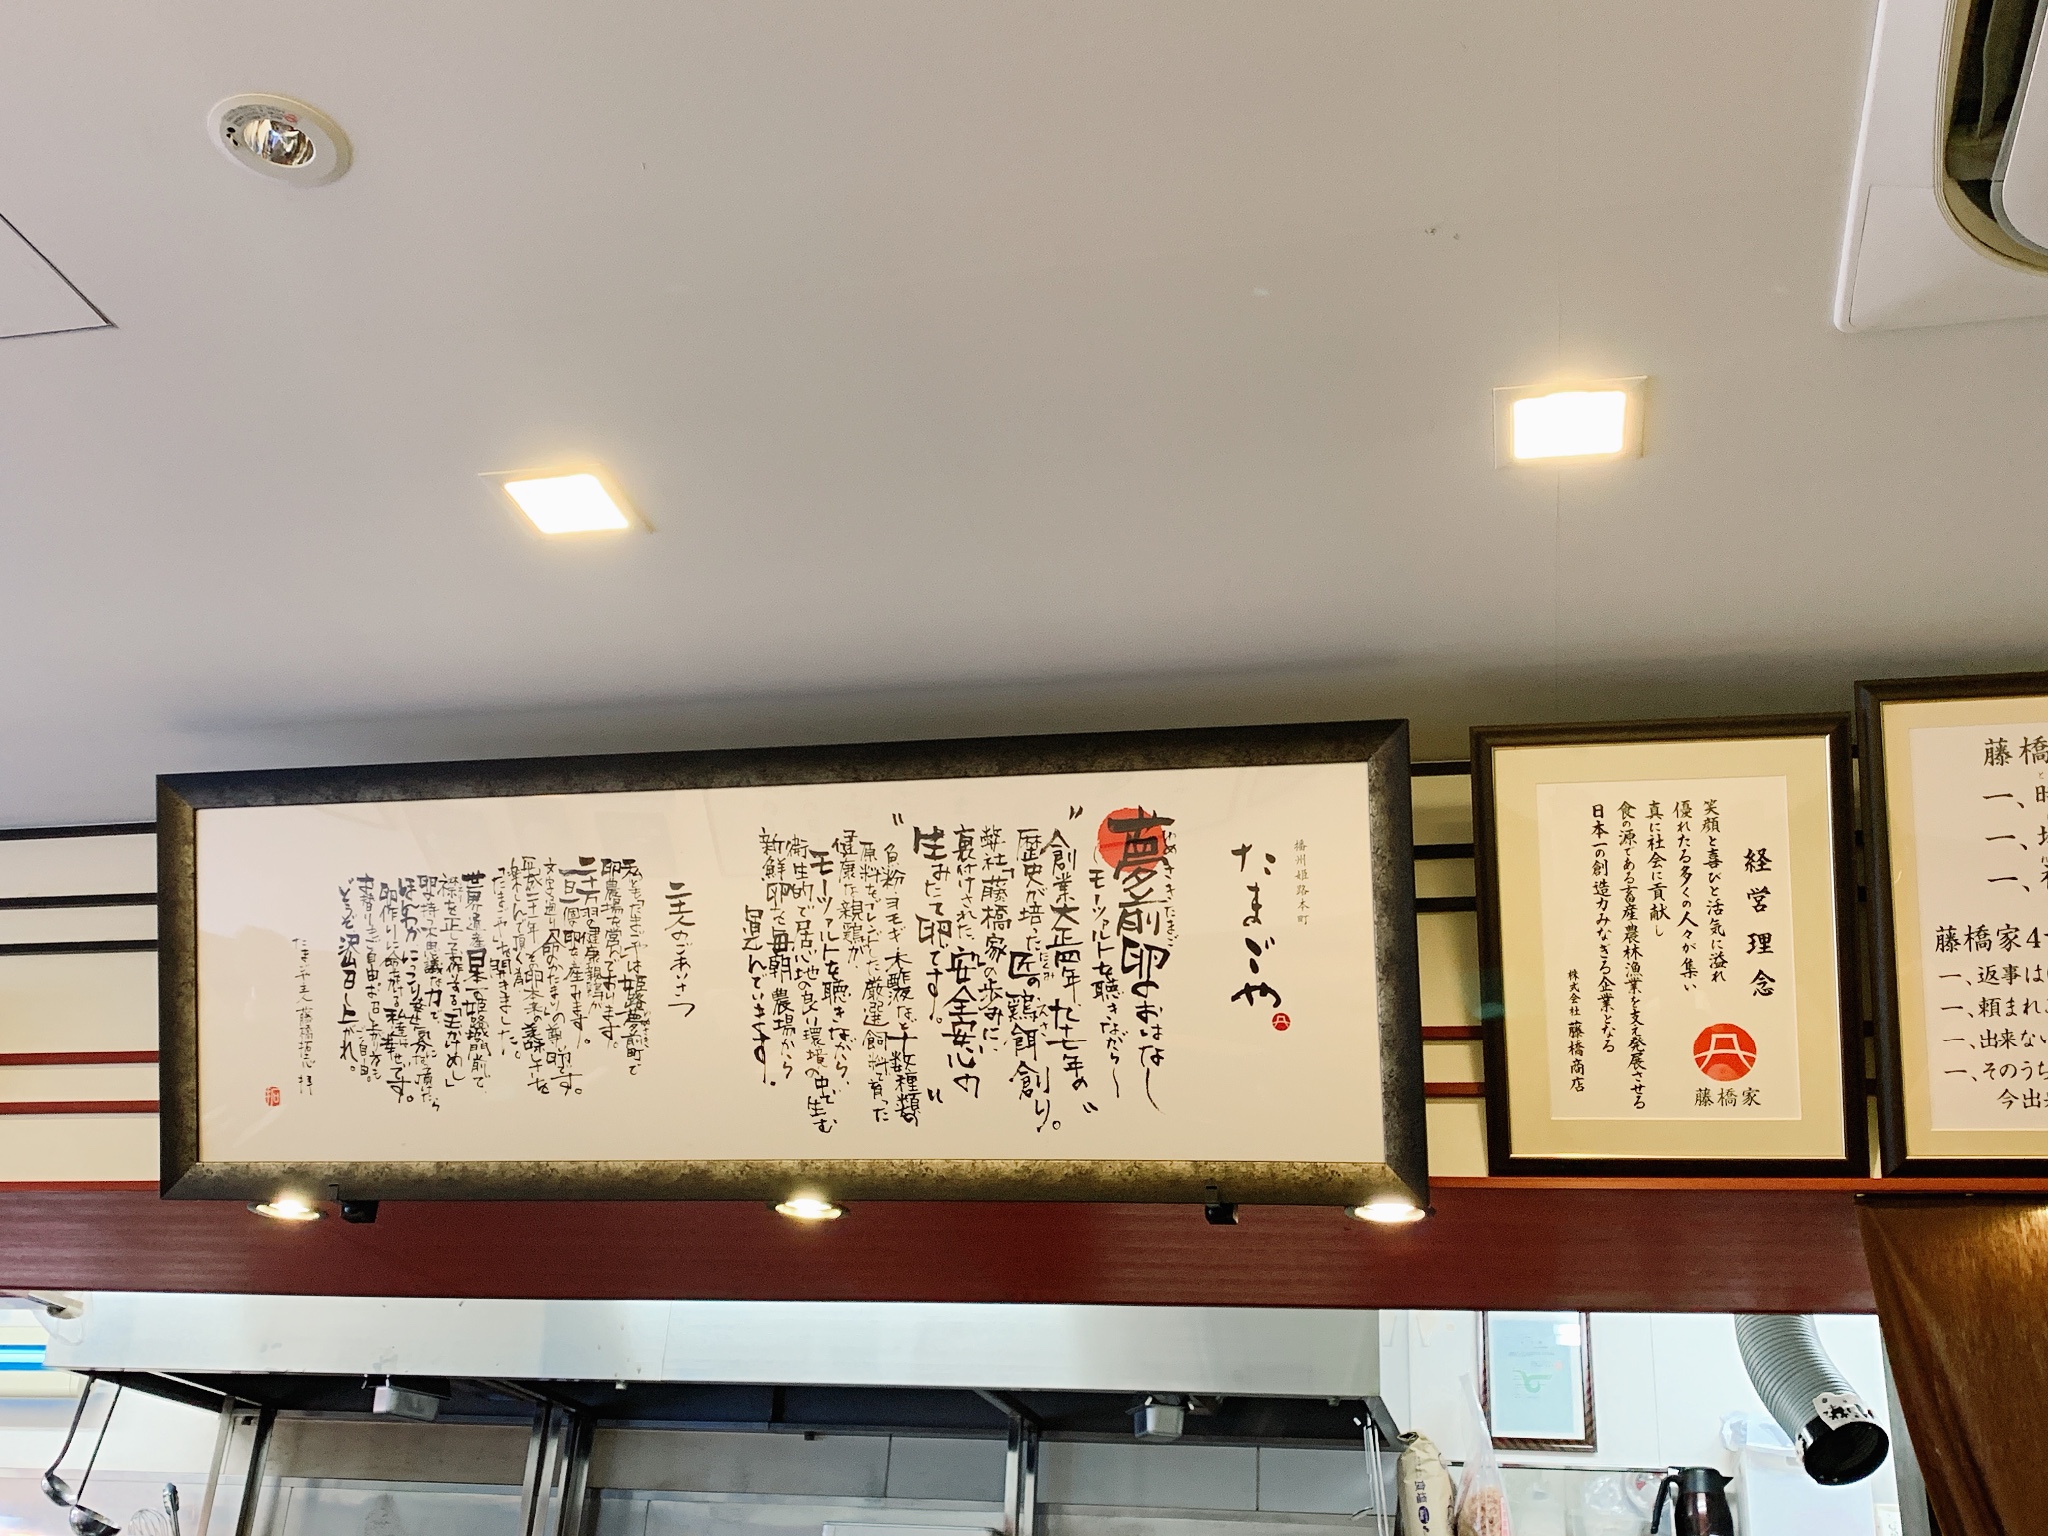 播州姫路本町
たまごや
夢前卵のおはなし
ゆめさきたまご
〜モーツァルトを聴きながら〜
"創業大正四年、九十七年の"
歴史が培った匠の鶏餌創り。
弊社「藤橋家」の歩みに、
裏付けされた、安全安心の
生みたて卵です。
"魚粉・ヨモギ・木酢液など十数種類の
原料をブレンドした厳選飼料で育った
健康な親鶏が、
モーツァルトを聴きながら、
衛生的で居心地の良い環境の中で生む
新鮮卵を毎朝農場から
運んでいます。
主人のごあいさつ
私ども「たまごや」は姫路夢前町で
卵農場を営んでおります。
二十万羽の健康な親鶏が
一日 個卵を産みます。
文字通り命のかたまりの尊い卵です。
平成二十年その卵本来の美味しさを
楽しんで頂く為
「たまごや」を開きました。
世界遺産日本一の姫路城門前で
襟を正して手作りする「玉かけめし」
卵の持つ不思議な力で、
ほんわかにっこり元気になって頂けたら
卵作りに命を懸ける私達は幸せです。
ご自由。
どうぞ沢山召し上がれ。
たまごや主人 藤橋拓志 拝
経営理念
笑顔と喜びと活気に溢れ
優れたる多くの人々が集い
真に社会に貢献し
食の源である畜産農林漁業を支え発展させる
日本一の創造力みなぎる企業となる
株式会社 藤橋商店
藤橋家
藤橋
一、時
一、
一、
藤橋家4
一、返事は
一、頼まれ
一、出来ない
一、そのうち
今出来